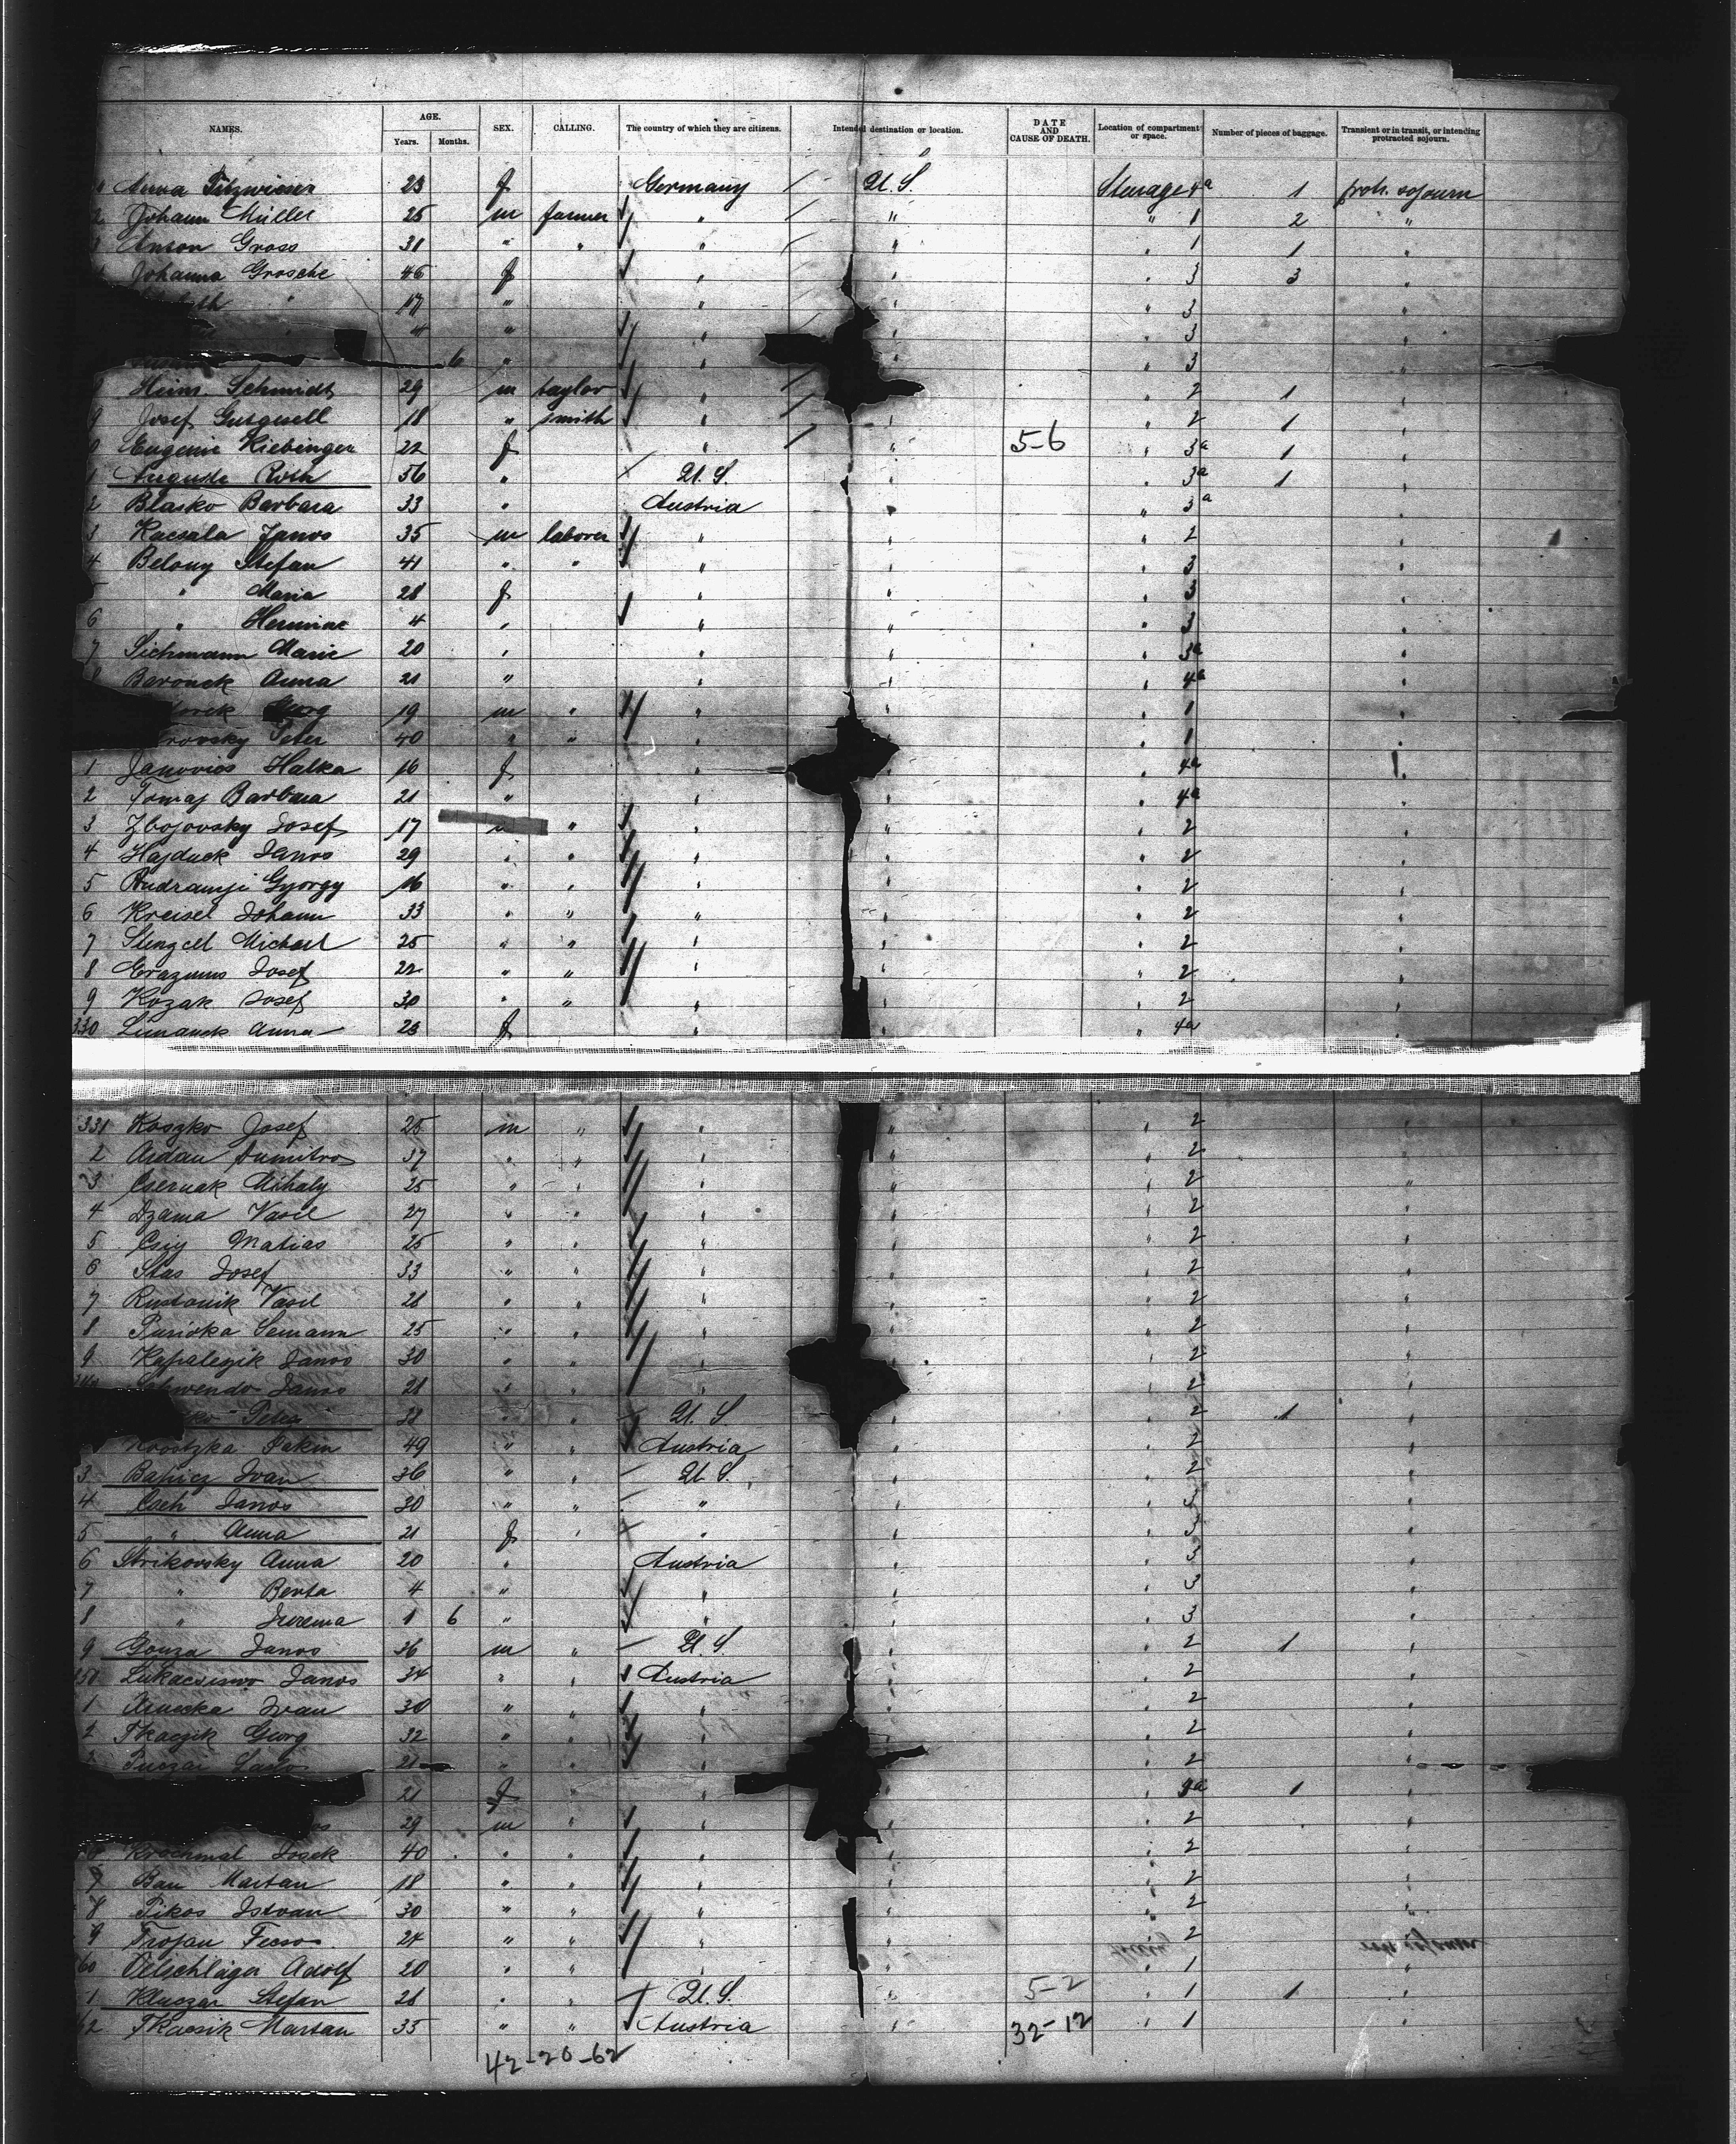 NAMES. AGE. Years. Months. SEX. CALLING. The country of which they are citizens. Intended destination or location. DATE AND CAUSE OF DEATH. Location of compartment or space. Number of pieces of baggage. Transient or in transit, or intending protracted sojourn.
Anna 23 f Germany / U.S. Steerage 4a 1 protr. sojourn
2 Johann Müller 25 m farmer " / " " 1 2 "
3 Anton Gross 31 " " " / " " 1 1 "
Johanna Grosche 46 f " " " 3 3 "
" 17 " " " " 3 "
" 4 " " " " 3 "
6 " " " " 3 "
Heinr. Schmidt 29 m taylor " / " " 2 1 "
9 Josef Gutgesell 18 " smith " / " " 2 1 "
0 Eugenie Kiebinger 22 f " / " 5-6 " 3a 1 "
1 Auguste Roth 56 " U.S. " " 3a 1 "
2 Blasko Barbara 33 " Austria " " 3a "
3 Kacsala Janos 35 m laborer " " " 2 "
4 Belony Stefan 41 " " " " " 3 "
5 " Maria 28 f " " " 3 "
6 " Hermine 4 " " " " 3 "
7 Sichmann Marie 20 " " " " 3a "
8 Baronek Anna 21 " " " " 4a "
Georg 19 m " " " " 1 "
Peter 40 " " " " " 1 "
1 Janovics Halka 16 f " " " 4a "
2 Tomaj Barbara 21 " " " " 4a "
3 Zbojovsky Josef 17 " " " " 2 "
4 Hajduck Janos 29 " " " " " 2 "
5 György 16 " " " " " 2 "
6 Kreisel Johann 33 " " " " " 2 "
7 Stengell Michael 25 " " " " " 2 "
8 Erazmus Josef 22 " " " " " 2 "
9 Kozak Josef 30 " " " " " 2 "
330 Anna 23 f " " " 4a "
331 Koszko Josef 25 m " " " " 2 "
2 Ardan Dumitros 37 " " " " " 2 "
3 Csernak Mihaly 25 " " " " " 2 "
4 Dzama Vasil 27 " " " " " 2 "
5 Csiy Matias 25 " " " " " 2 "
6 Stas Josef 33 " " " " " 2 "
7 Vasil 28 " " " " " 2 "
8 Semann 25 " " " " " 2 "
9 Kapalczik Janos 30 " " " " " 2 "
Janos 28 " " " " " 2 "
Petro 38 " " U.S. " " 2 1 "
49 " " Austria " " 2 "
3 Bapicz Ivan 36 " " U.S. " " 2 "
4 Cseh Janos 30 " " " " " 3 "
5 " Anna 21 f " " " " 3 "
6 Strikovsky Anna 20 " Austria " " 3 "
7 " Berta 4 " " " " 3 "
8 " 1 6 " " " " 3 "
9 Gouza Janos 36 m " U.S. " " 2 1 "
350 Janos 34 " " Austria " " 2 "
1 Ivan 30 " " " " " 2 "
2 Tkaczik Georg 32 " " " " " 2 "
21 " " " " " 2 "
21 f " " " " 3a 1 "
29 m " " " " 2 "
Krochmal Josek 40 " " " " " 2 "
7 Ban Martan 18 " " " " " 2 "
8 Pikos Istvan 30 " " " " " 2 "
9 Trojan Fecsos 24 " " " " " 2 "
60 Oelschläger Adolf 20 " " " " " 1 "
1 Kluczar Stefan 28 " " U.S. " 5-2 " 1 1 "
62 Tkacsik Martan 35 " " Austria " 32-12 " 1 "
42-20-62